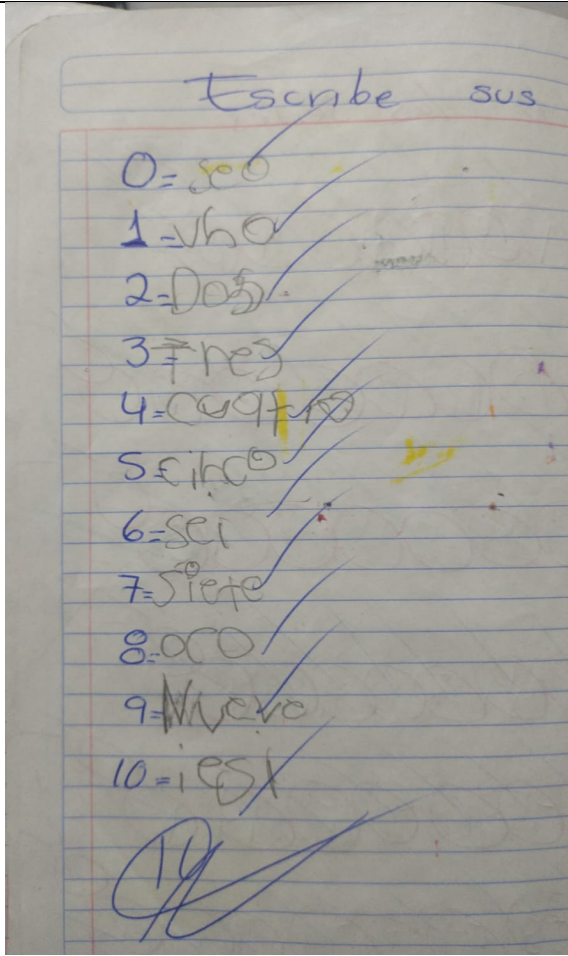 Escribe sus
0= seo
1=Uno
2=Dos
3=Tres
4=cuatro
5=cinco
6=sei
7=Siete
8=oco
9=Nueve
10=iesi